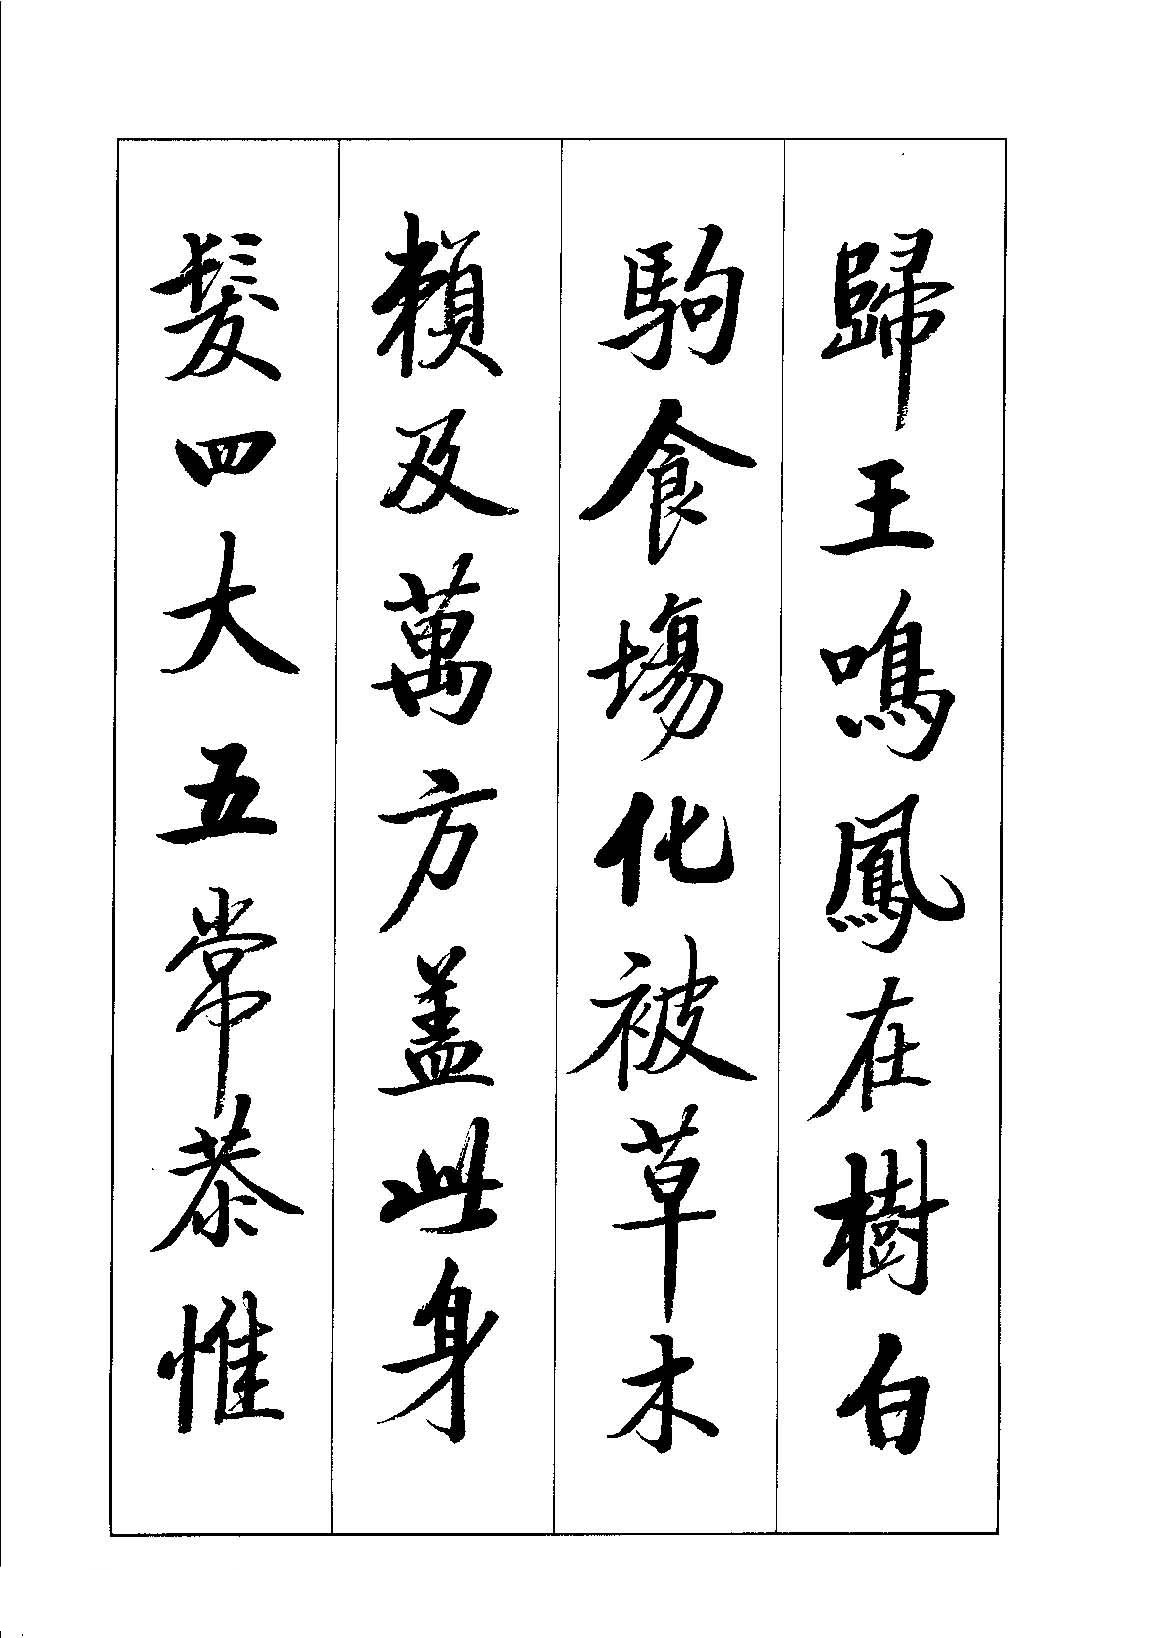 歸王鳴鳳在樹白
駒食場化被草木
賴及萬方蓋此身
髮四大五常恭惟